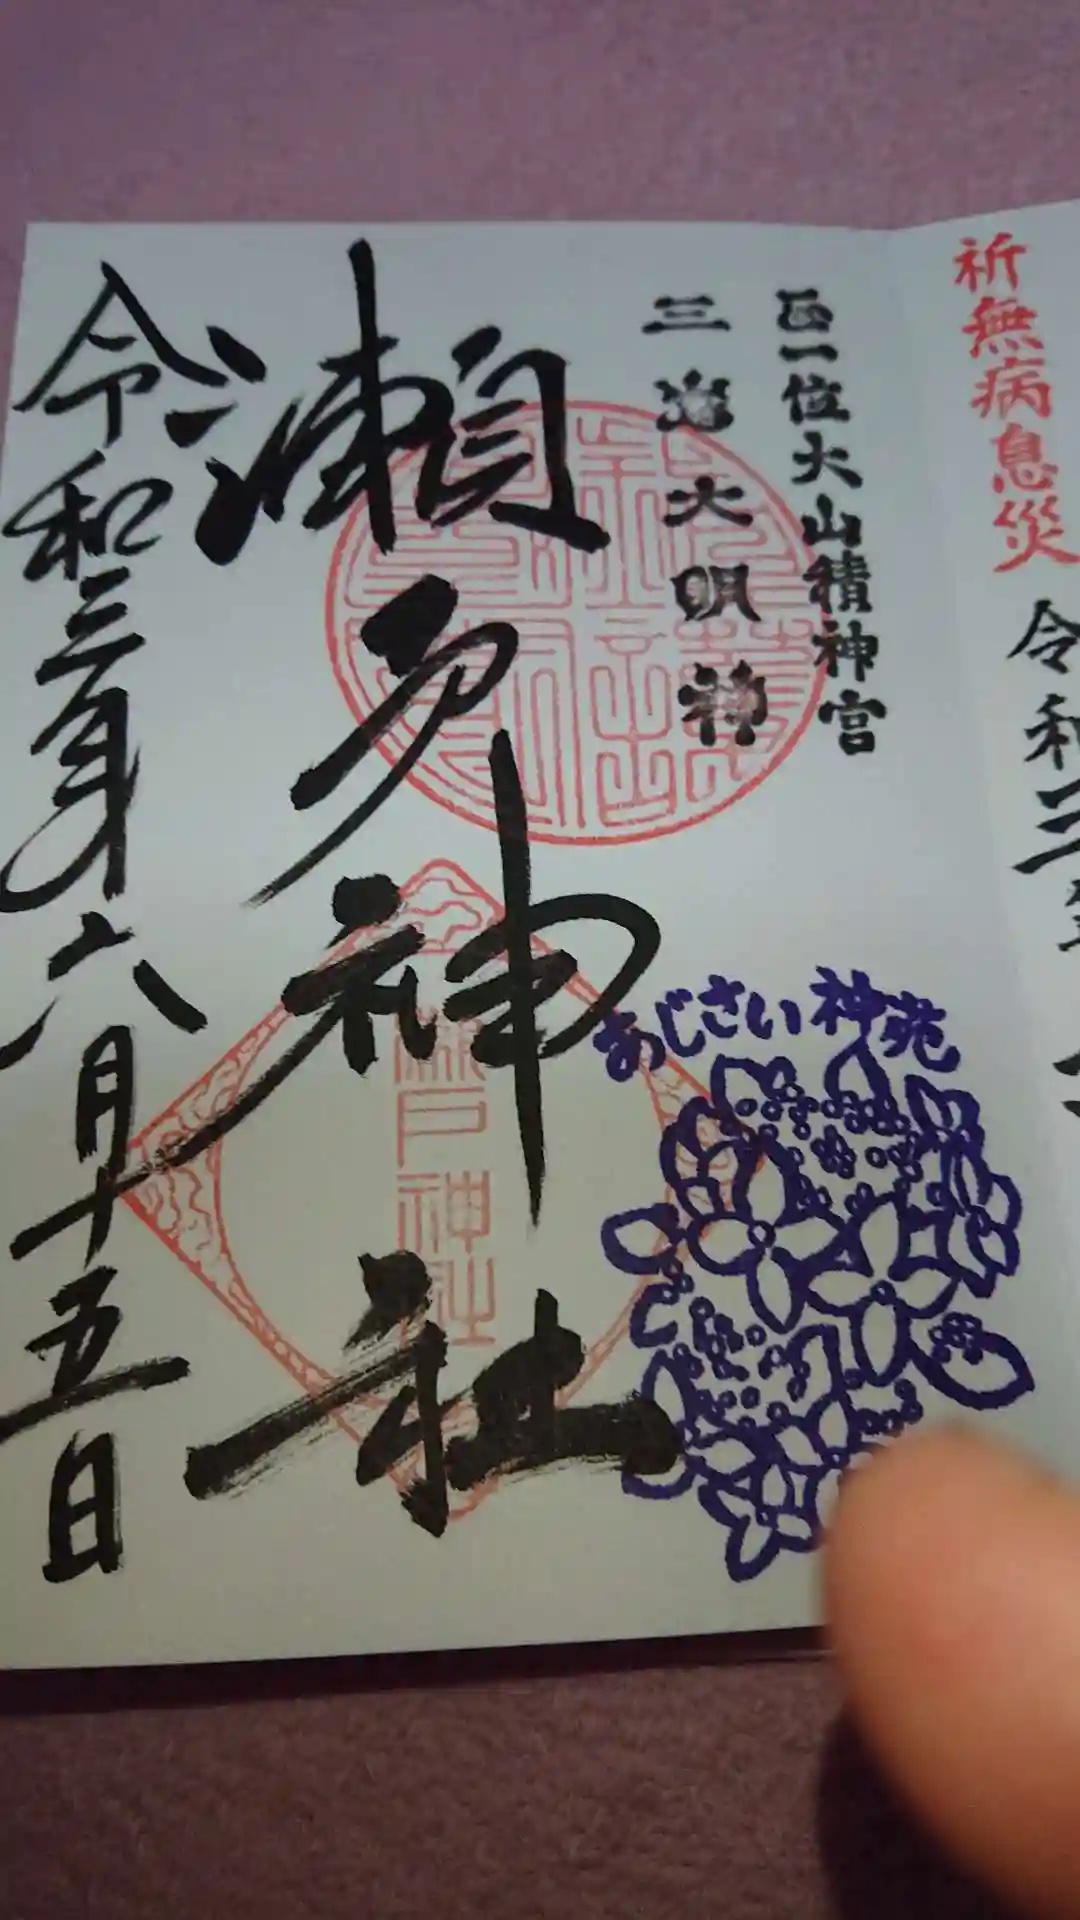 祈無病息災
令和三
正一位大山積神宮
三島大明神
瀬戸神社
瀬戸神社
あじさい神苑
令和三年六月十五日